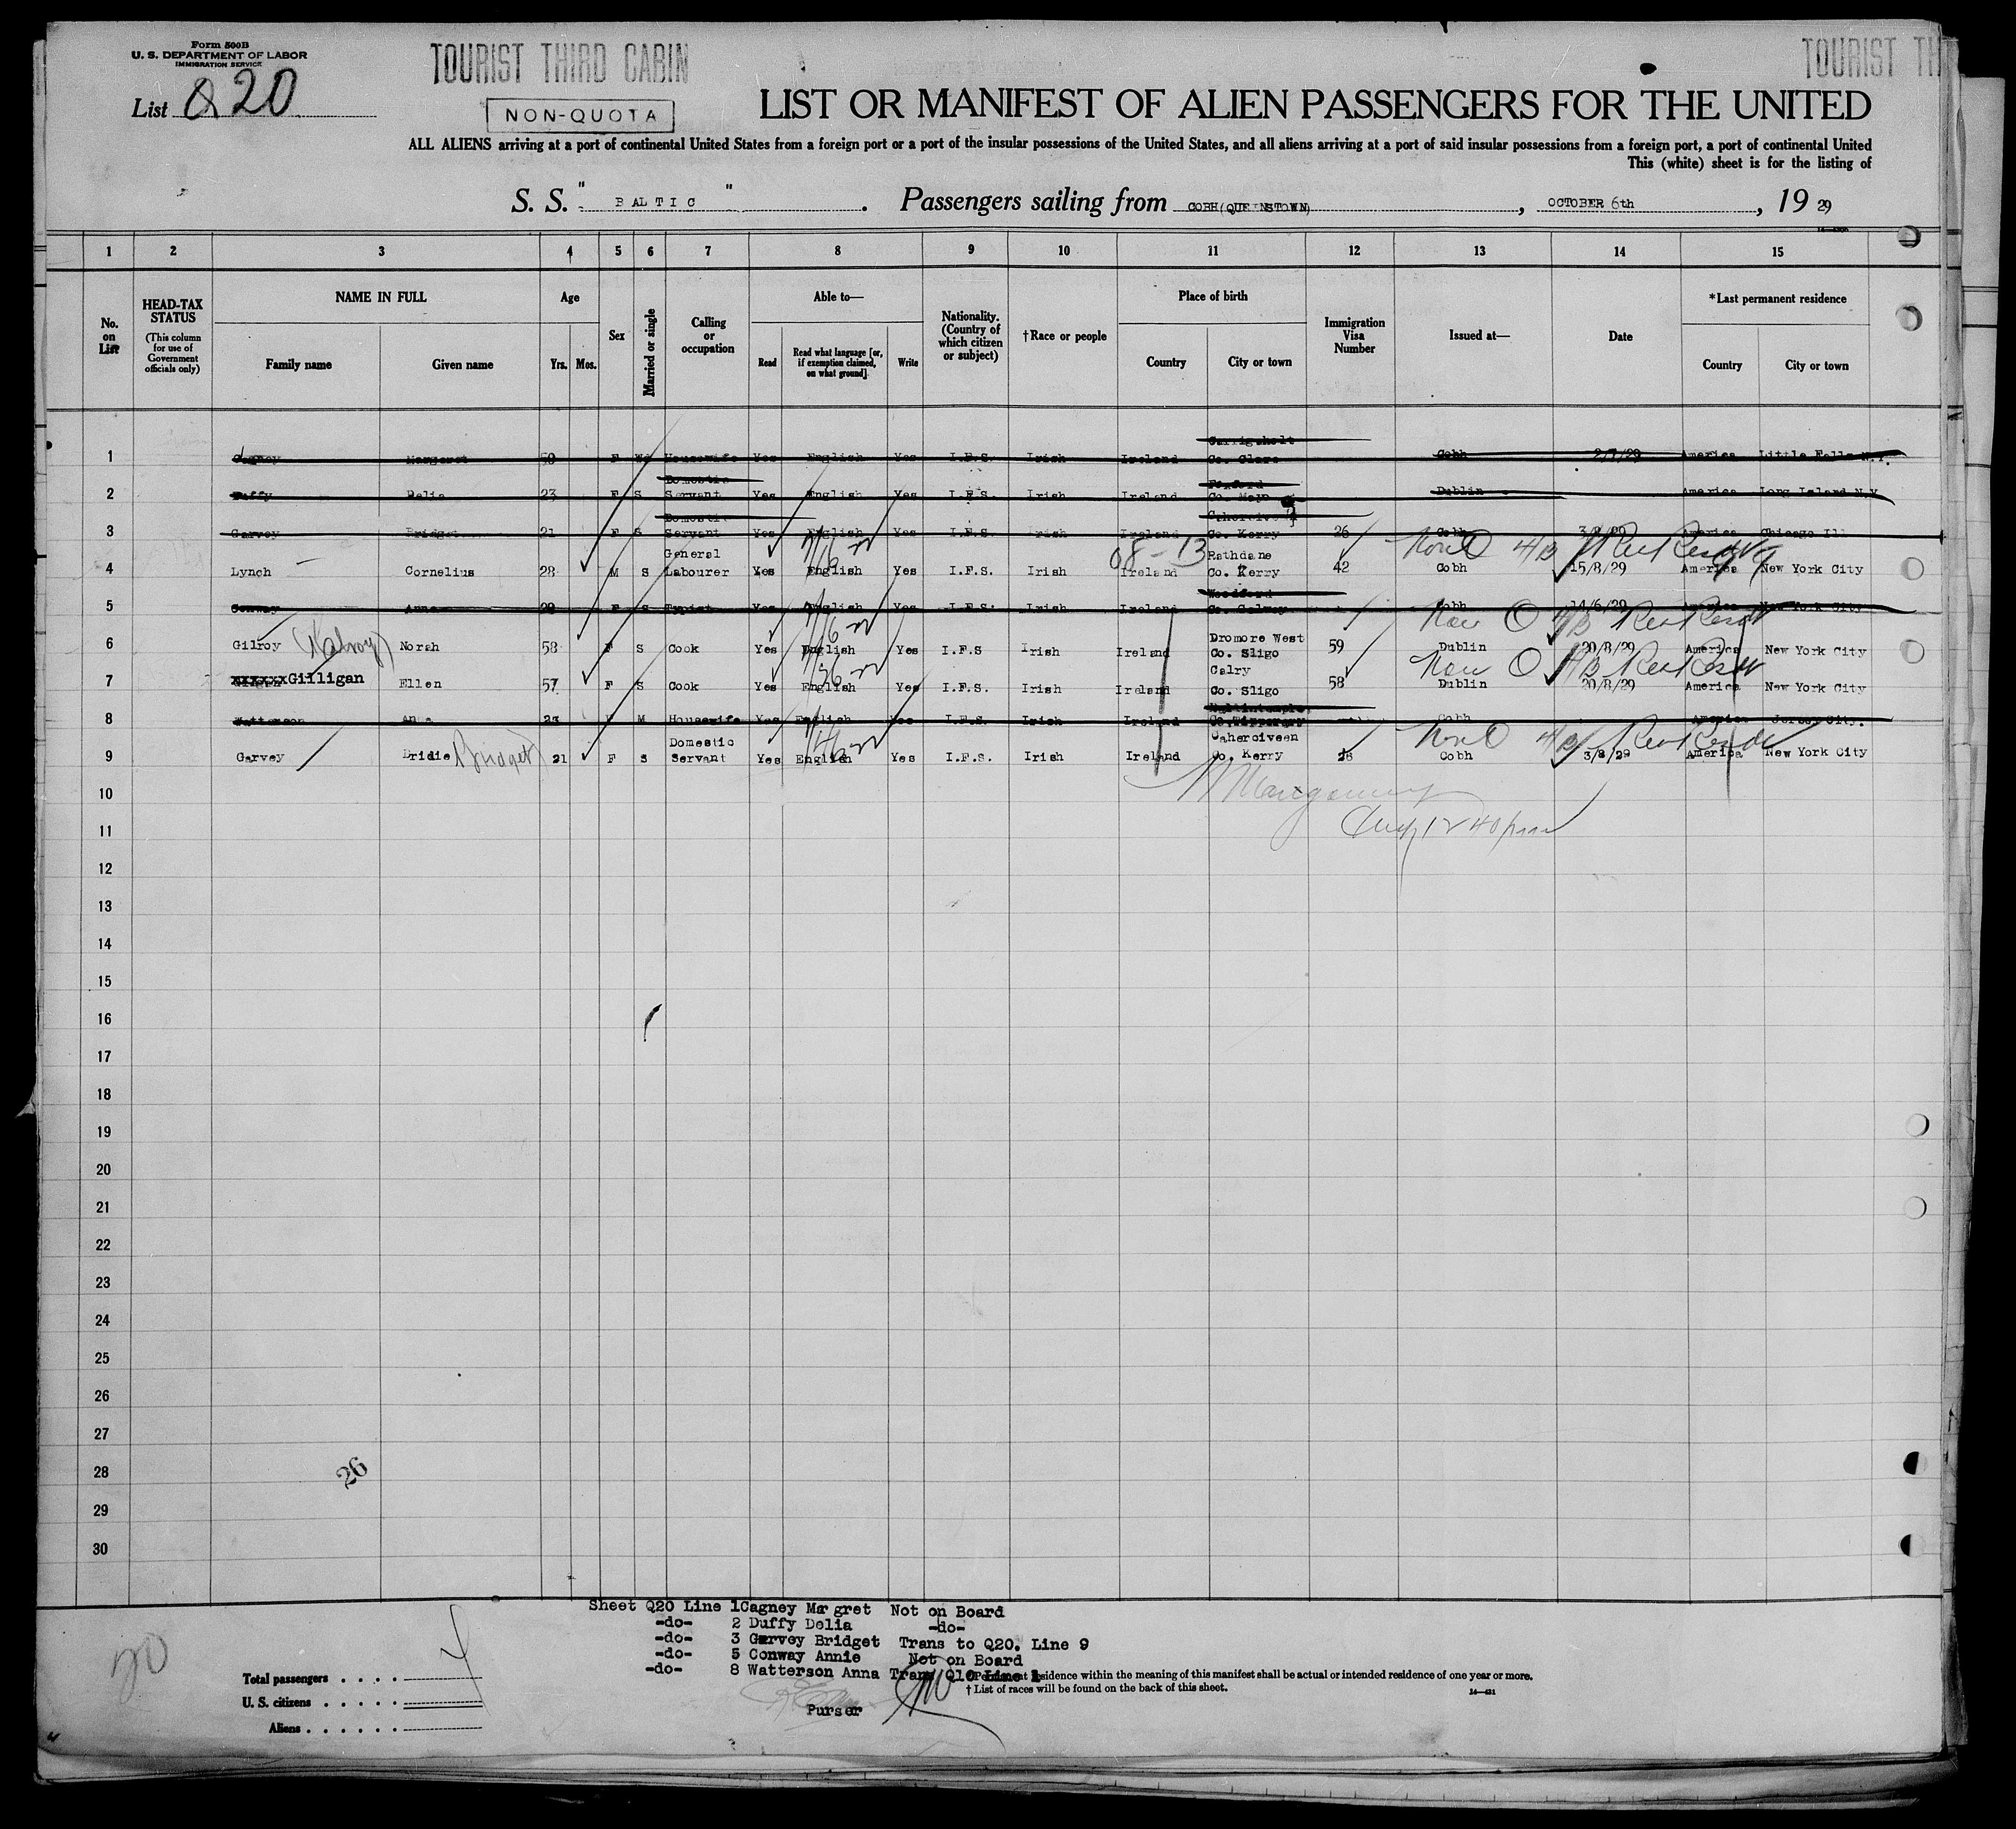 Form 500B
U. S. DEPARTMENT OF LABOR
IMMIGRATION SERVICE
TOURIST THIRD CABIN
TOURIST TH
List Q20
NON-QUOTA
LIST OR MANIFEST OF ALIEN PASSENGERS FOR THE UNITED
ALL ALIENS arriving at a port of continental United States from a foreign port or a port of the insular possessions of the United States, and all aliens arriving at a port of said insular possessions from a foreign port, a port of continental United
This (white) sheet is for the listing of
S. S. " BALTIC ". Passengers sailing from COBH(QUEENSTOWN), OCTOBER 6th, 19 29
1 2 3 4 5 6 7 8 9 10 11 12 13 14 15
No. on List
HEAD-TAX STATUS
(This column for use of Government officials only)
NAME IN FULL
Family name Given name
Age
Yrs. Mos.
Sex
Married or single
Calling or occupation
Able to—
Read
Read what language [or, if exemption claimed, on what ground]
Write
Nationality. (Country of which citizen or subject)
†Race or people
Place of birth
Country City or town
Immigration Visa Number
Issued at—
Date
*Last permanent residence
Country City or town
1 Cagney Margaret 50 F Wd Housewife Yes English Yes I.F.S. Irish Ireland Carrigaholt Co. Clare Cobh 2/7/29 America Little Falls N.Y.
2 Duffy Delia 23 F S Domestic Servant Yes English Yes I.F.S. Irish Ireland Foxford Co. Mayo Dublin America Long Island N.Y
3 Garvey Bridget 21 F S Domestic Servant Yes English Yes I.F.S. Irish Ireland Caherciveen Co. Kerry 26 Cobh 3/8/29 America Chicago Ill
4 Lynch Cornelius 28 M S General Labourer Yes English Yes I.F.S. Irish Ireland Rathdane Co. Kerry 42 Cobh 15/8/29 America New York City
08-13
5 Conway Anne F S Typist Yes English Yes I.F.S. Irish Ireland Woodford Co. Galway Cobh 14/6/29 America New York City
6 Gilroy (Kalroy) Norah 58 F S Cook Yes English Yes I.F.S Irish Ireland Dromore West Co. Sligo 59 Dublin 20/8/29 America New York City
7 xxxxxxGilligan Ellen 57 F S Cook Yes English Yes I.F.S. Irish Ireland Calry Co. Sligo 58 Dublin 20/8/29 America New York City
8 Watterson Anna 23 F M Housewife Yes English Yes I.F.S. Irish Ireland Co. Tipperary Cobh America Jersey City.
9 Garvey Bridie Bridget 21 F S Domestic Servant Yes English Yes I.F.S. Irish Ireland Caherciveen Co. Kerry 26 Cobh 3/8/29 America New York City
10
11
12
13
14
15
16
17
18
19
20
21
22
23
24
25
26
27
28
29
30
26
Sheet Q20 Line 1 Cagney Margret Not on Board
-do- 2 Duffy Delia -do-
-do- 3 Garvey Bridget Trans to Q20. Line 9
-do- 5 Conway Annie Not on Board
-do- 8 Watterson Anna Trans Q10 Line 1
20
Total passengers . . . .
U. S. citizens . . . . .
Aliens . . . . . .
4
Purser
*Permanent residence within the meaning of this manifest shall be actual or intended residence of one year or more.
† List of races will be found on the back of this sheet.
14—421